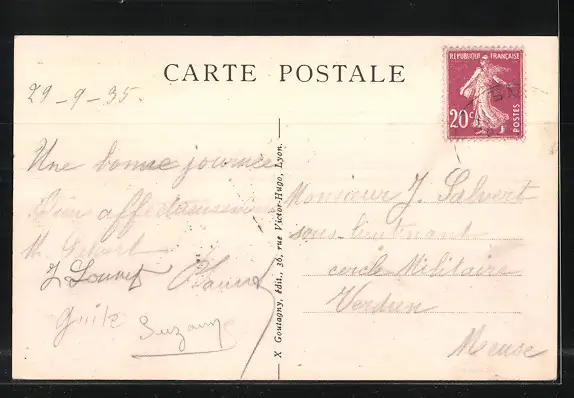 CARTE POSTALE
RÉPUBLIQUE FRANÇAISE
20c
POSTES
29-9-35.
Une bonne journée
Bien affectueusement
J. Louvet
Suzanne
X Goutagny, édit., 36, rue Victor-Hugo, Lyon.
Monsieur J. Salvert
sous-lieutenant
cercle Militaire
Verdun
Meuse